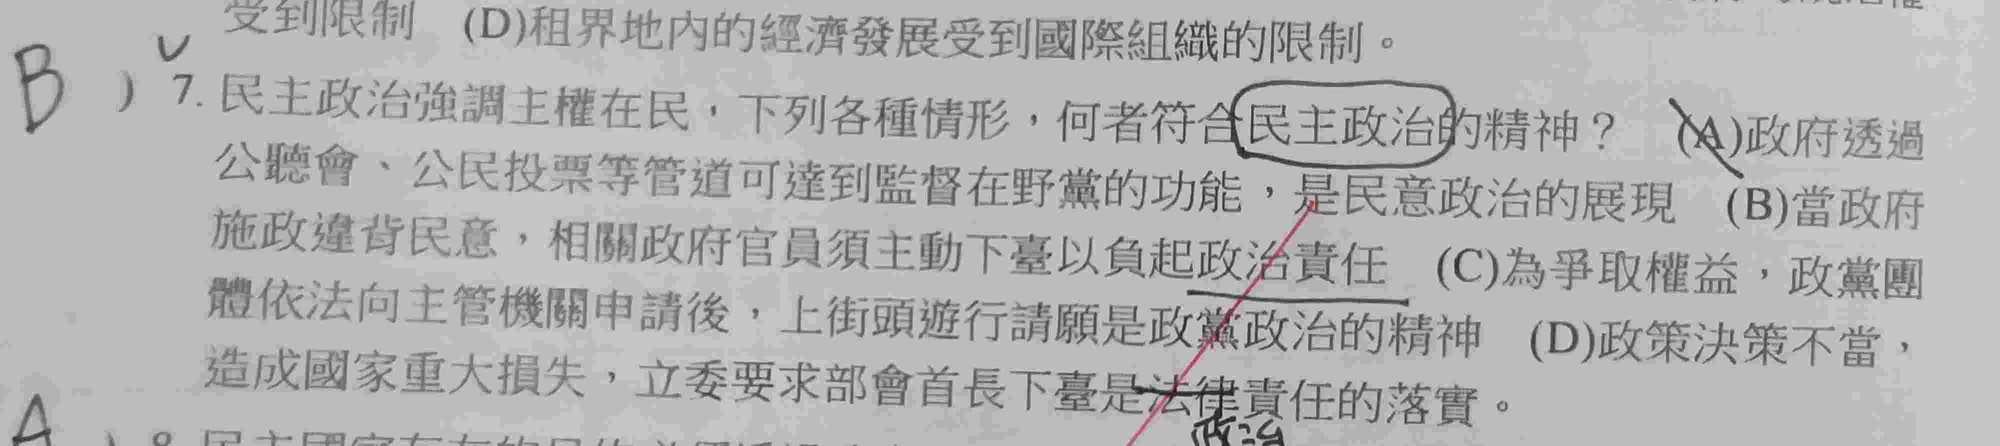 受到限制 (D)租界地內的經濟發展受到國際組織的限制。
B ) 7. 民主政治強調主權在民，下列各種情形，何者符合民主政治的精神？ (A)政府透過
公聽會、公民投票等管道可達到監督在野黨的功能，是民意政治的展現 (B)當政府
施政違背民意，相關政府官員須主動下臺以負起政治責任 (C)為爭取權益，政黨團
體依法向主管機關申請後，上街頭遊行請願是政黨政治的精神 (D)政策決策不當，
造成國家重大損失，立委要求部會首長下臺是法律責任的落實。
政治
A ) 8. 民主國家